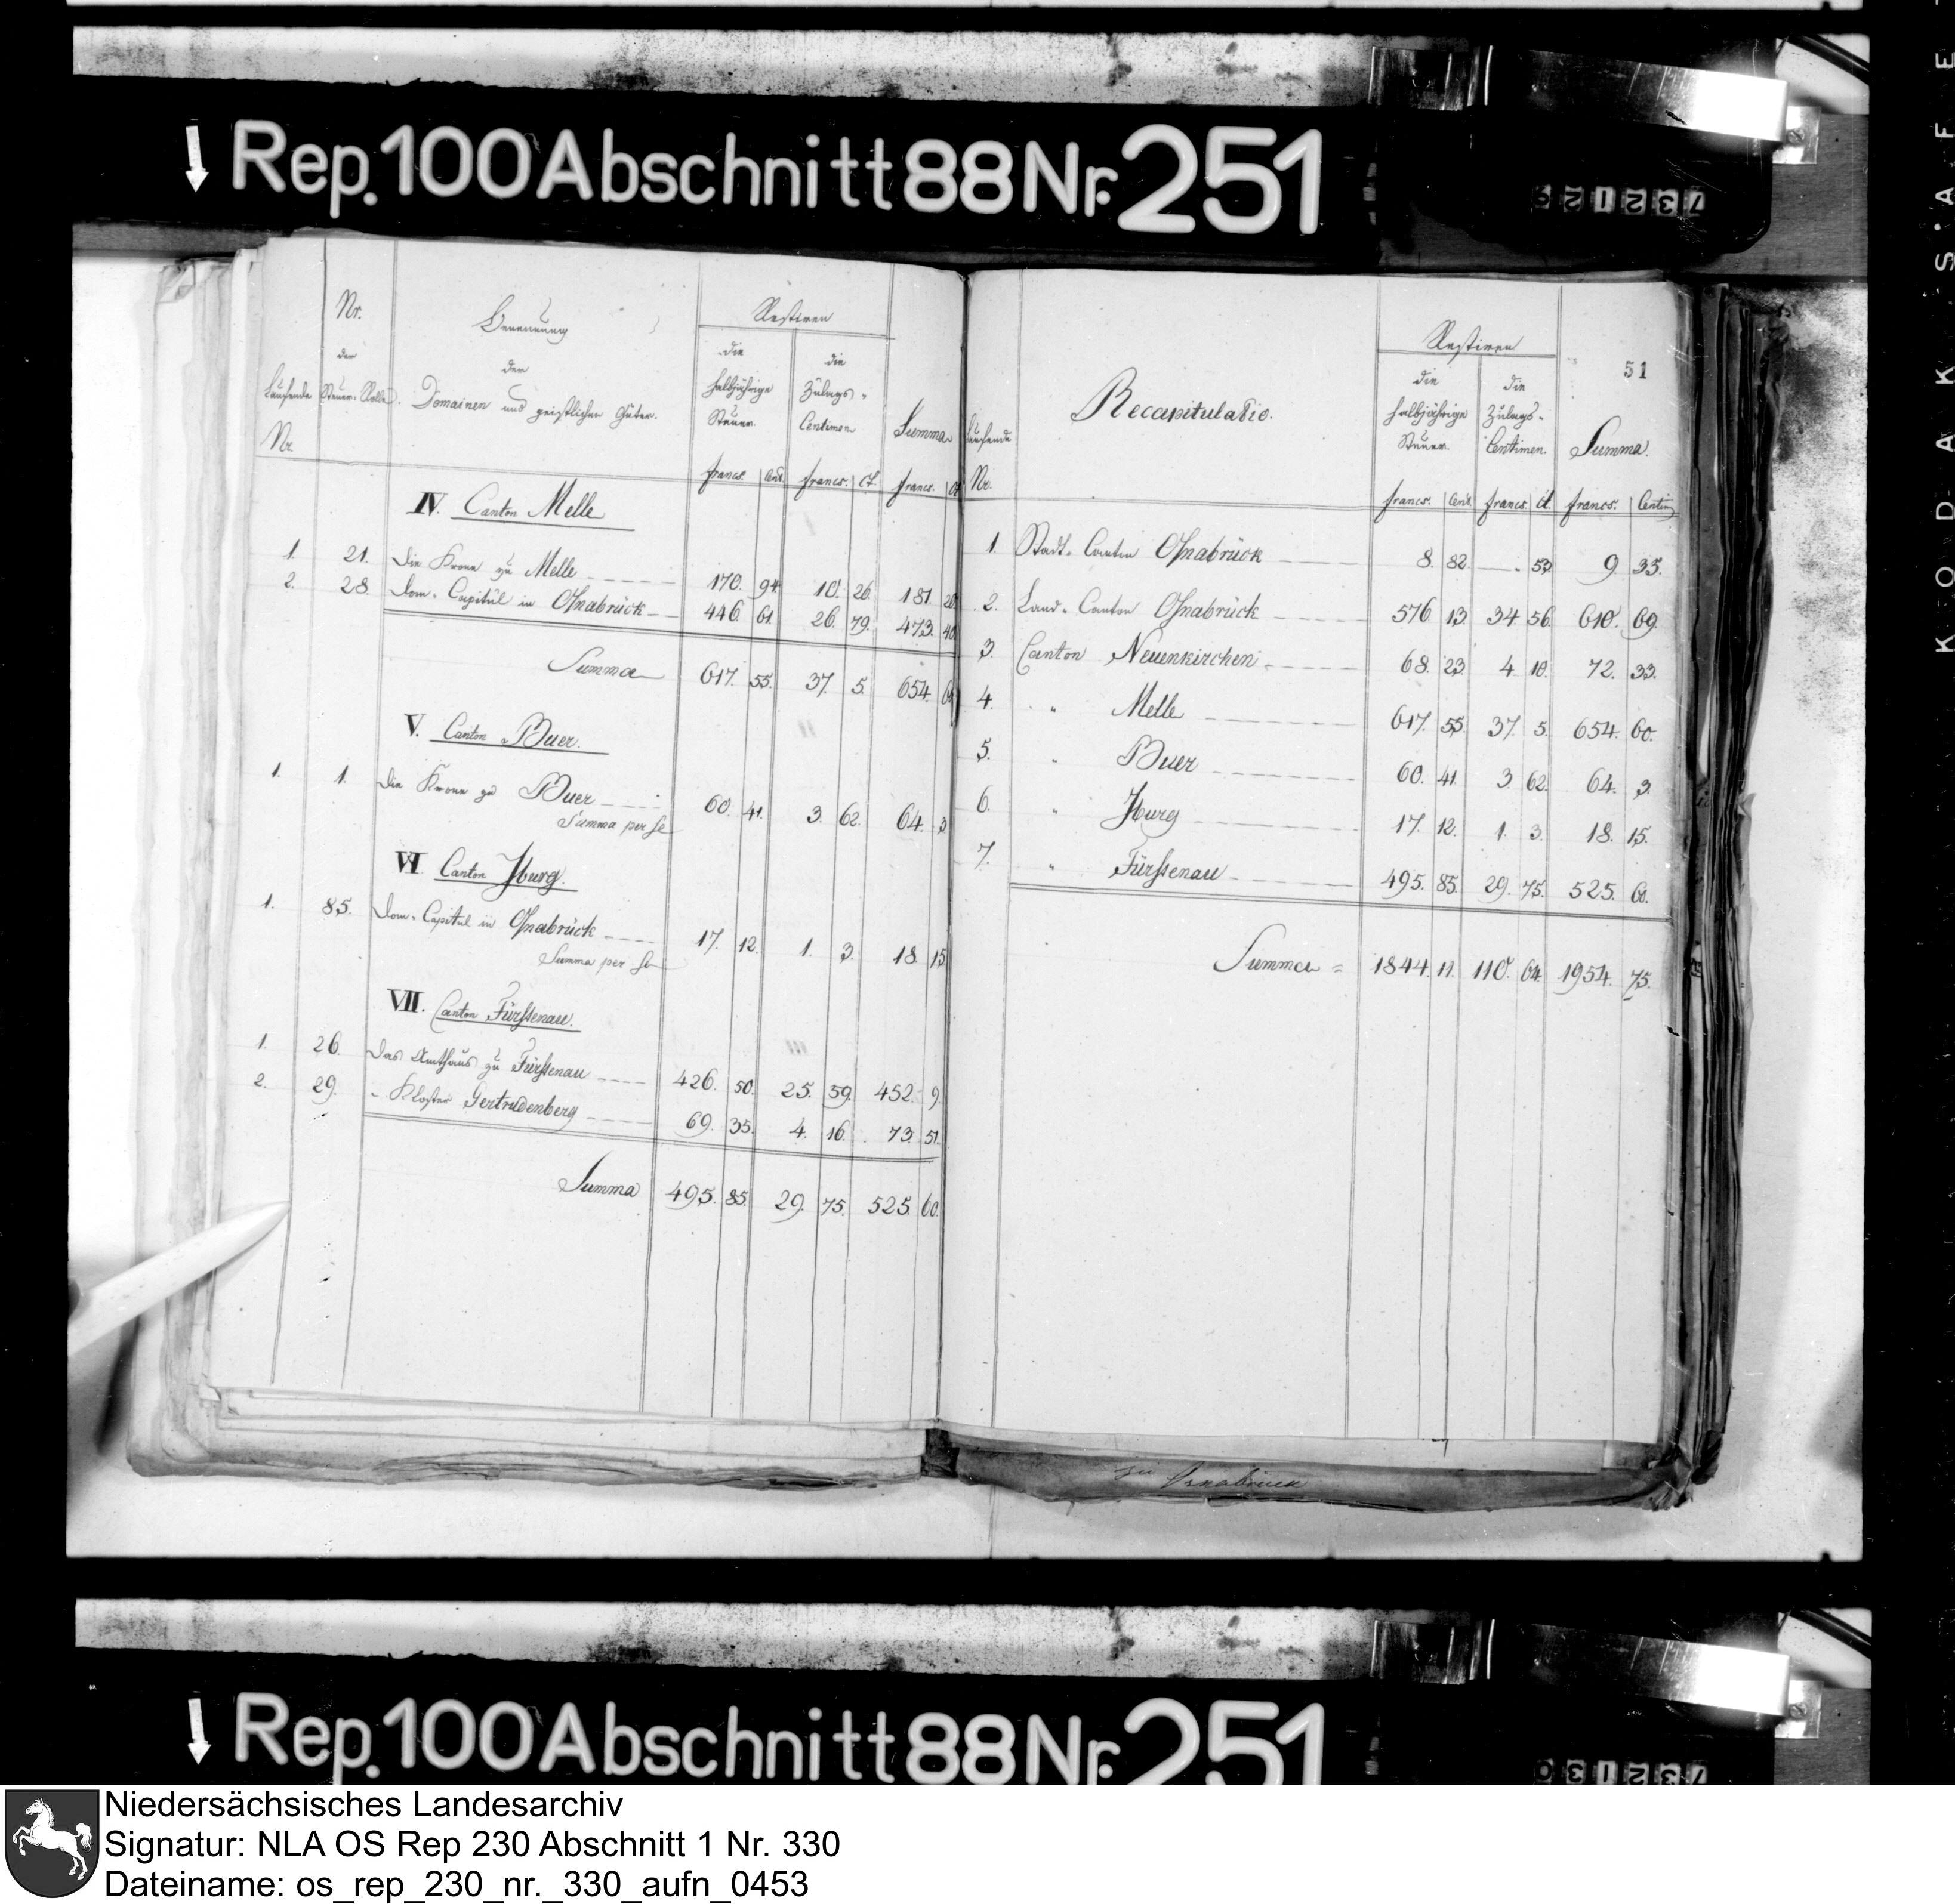 Rep. 100 Abschnitt 88 Nr. 251
732129
Laufende Nr. | Nr. der Steuer-Rolle. | Benennung der Domainen und geistlichen Güter. | Restiren | Summa
die halbjährige Steuer. | die Zulags-Centimen
francs. | Cent. | francs. | Ct. | francs. | Ct
IV. Canton Melle
1. 21. Die Krone zu Melle 170. 94. 10. 26. 181. 20.
2. 28. Dom-Capitul in Osnabrück 446. 61. 26. 79. 473. 40.
Summa 617. 55. 37. 5. 654. 60
V. Canton Buer.
1. 1. Die Krone zu Buer 60. 41. 3. 62. 64. 3
Summa per se
VI Canton Iburg.
1. 85. Dom-Capitul in Osnabrück 17. 12. 1. 3. 18. 15
Summa per se
VII. Canton Fürstenau.
1. 26. Das Amthaus zu Fürstenau 426. 50. 25. 59. 452. 9.
2. 29. " Kloster Gertrudenberg 69. 35. 4. 16. 73. 51.
Summa 495. 85. 29. 75. 525. 60.
51
Laufende Nr. | Recapitulatio. | Restiren | Summa.
die halbjährige Steuer. | die Zulags-Centimen.
francs. | Cent. | francs. | Ct. | francs. | Centim
1. Stadt-Canton Osnabrück 8. 82. —. 53. 9. 35.
2. Land-Canton Osnabrück 576. 13. 34. 56. 610. 69.
3. Canton Neuenkirchen 68. 23. 4. 10. 72. 33.
4. " Melle 617. 55. 37. 5. 654. 60.
5. " Buer 60. 41. 3. 62. 64. 3.
6. " Iburg 17. 12. 1. 3. 18. 15.
7. " Fürstenau 495. 85. 29. 75. 525. 60.
Summa = 1844. 11. 110. 64. 1954. 75.
zu Osnabrück
KODAK SAFE
Rep. 100 Abschnitt 88 Nr. 251
732130
Niedersächsisches Landesarchiv
Signatur: NLA OS Rep 230 Abschnitt 1 Nr. 330
Dateiname: os_rep_230_nr._330_aufn_0453